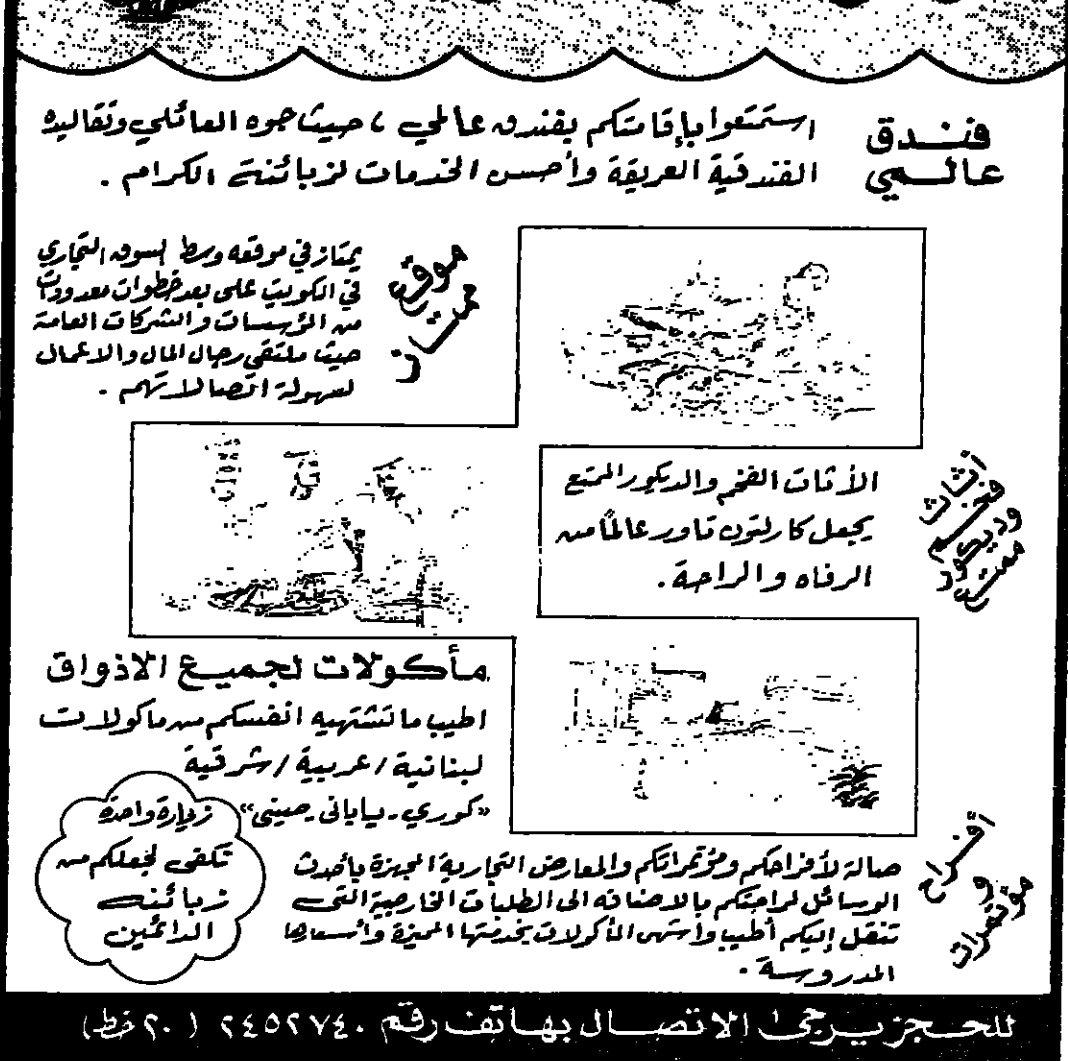 فندق
عالمي
استمتعوا بإقامتكم بفندق عالمي ، حيث جوه العائلي وتقاليده
الفندقية العريقة وأحسن الخدمات لزبائنه الكرام .
موقع
ممتاز
يمتاز في موقعه وسط السوق التجاري
في الكويت على بعد خطوات معدودات
من المؤسسات والشركات العامة
حيث ملتقى رجال المال والاعمال
لسهولة اتصالاتهم .
أثاث
فخم
وديكور
ممتع
الأثاث الفخم والديكور الممتع
يجعل كارلتون تاور عالماً من
الرفاه والراحة .
مأكولات لجميع الاذواق
اطيب ما تشتهيه انفسكم من ماكولات
لبنانية / عربية / شرقية
«كوري - ياباني - صيني»
زيارة واحدة
تكفي لجعلكم من
زبائنه
الدائمين
أفراح
و
مؤتمرات
صالة لأفراحكم ومؤتمراتكم والمعارض التجارية المجهزة بأحدث
الوسائل لراحتكم بالاضافه الى الطلبات الخارجية التي
تنقل إليكم أطيب وأشهى المأكولات بخدمتها المميزة وأسعارها
المدروسة .
للحجز يرجى الاتصال بهاتف رقم ٢٤٥٢٧٤٠ ( ٢٠ خط )